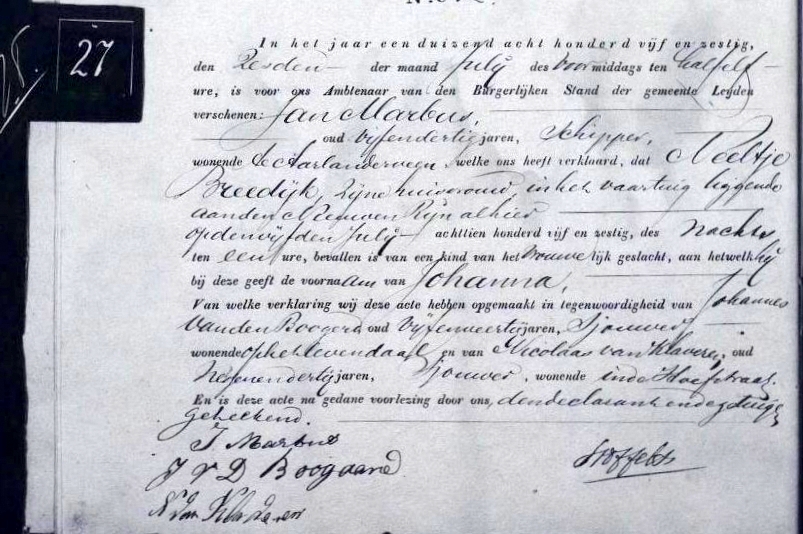 27
In het jaar een duizend acht honderd vijf en zestig,
den Zesden der maand July des voormiddags ten half elf
ure, is voor ons Ambtenaar van den Burgerlijken Stand der gemeente Leyden
verschenen: Jan Marbus,
oud vyfendertig jaren, Schipper,
wonende te Aarlanderveen, welke ons heeft verklaard, dat Neeltje
Breedijk, zyne huisvrouw, in het vaartuig liggende
aan den Nieuwen Rijn alhier
op den vyfden July achttien honderd vijf en zestig, des nachts
ten een ure, bevallen is van een kind van het vrouwelijk geslacht, aan hetwelk hy
bij deze geeft de voornaam van Johanna,
Van welke verklaring wij deze acte hebben opgemaakt in tegenwoordigheid van Johannes
van den Boogerd oud vyfenveertig jaren, Sjouwer,
wonende op het Levendaal en van Nicolaas van Klaveren, oud
jaren, Sjouwer, wonende in de
En is deze acte na gedane voorlezing door ons, den declarant en de getuigen
geteekend.
J Marbus
J v D Boogaard
N van Klaveren